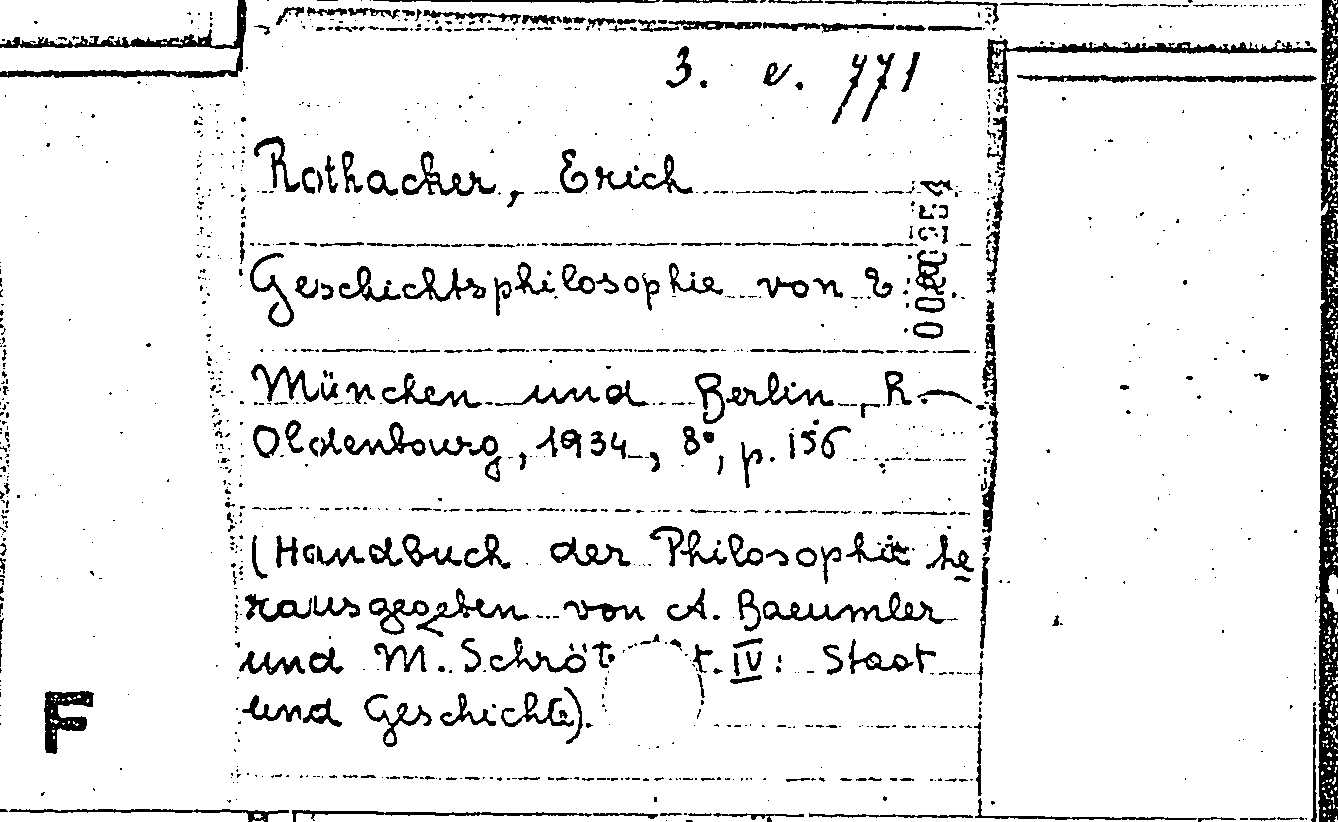 3. e. 771
Rothacker, Erich
Geschichtsphilosophie von E
München und Berlin, R.
Oldenbourg, 1934, 8°, p. 156
(Handbuch der Philosophie he
rausgegeben von A. Baeumler
und M. Schröt t. IV: Staat
und Geschichte).
F